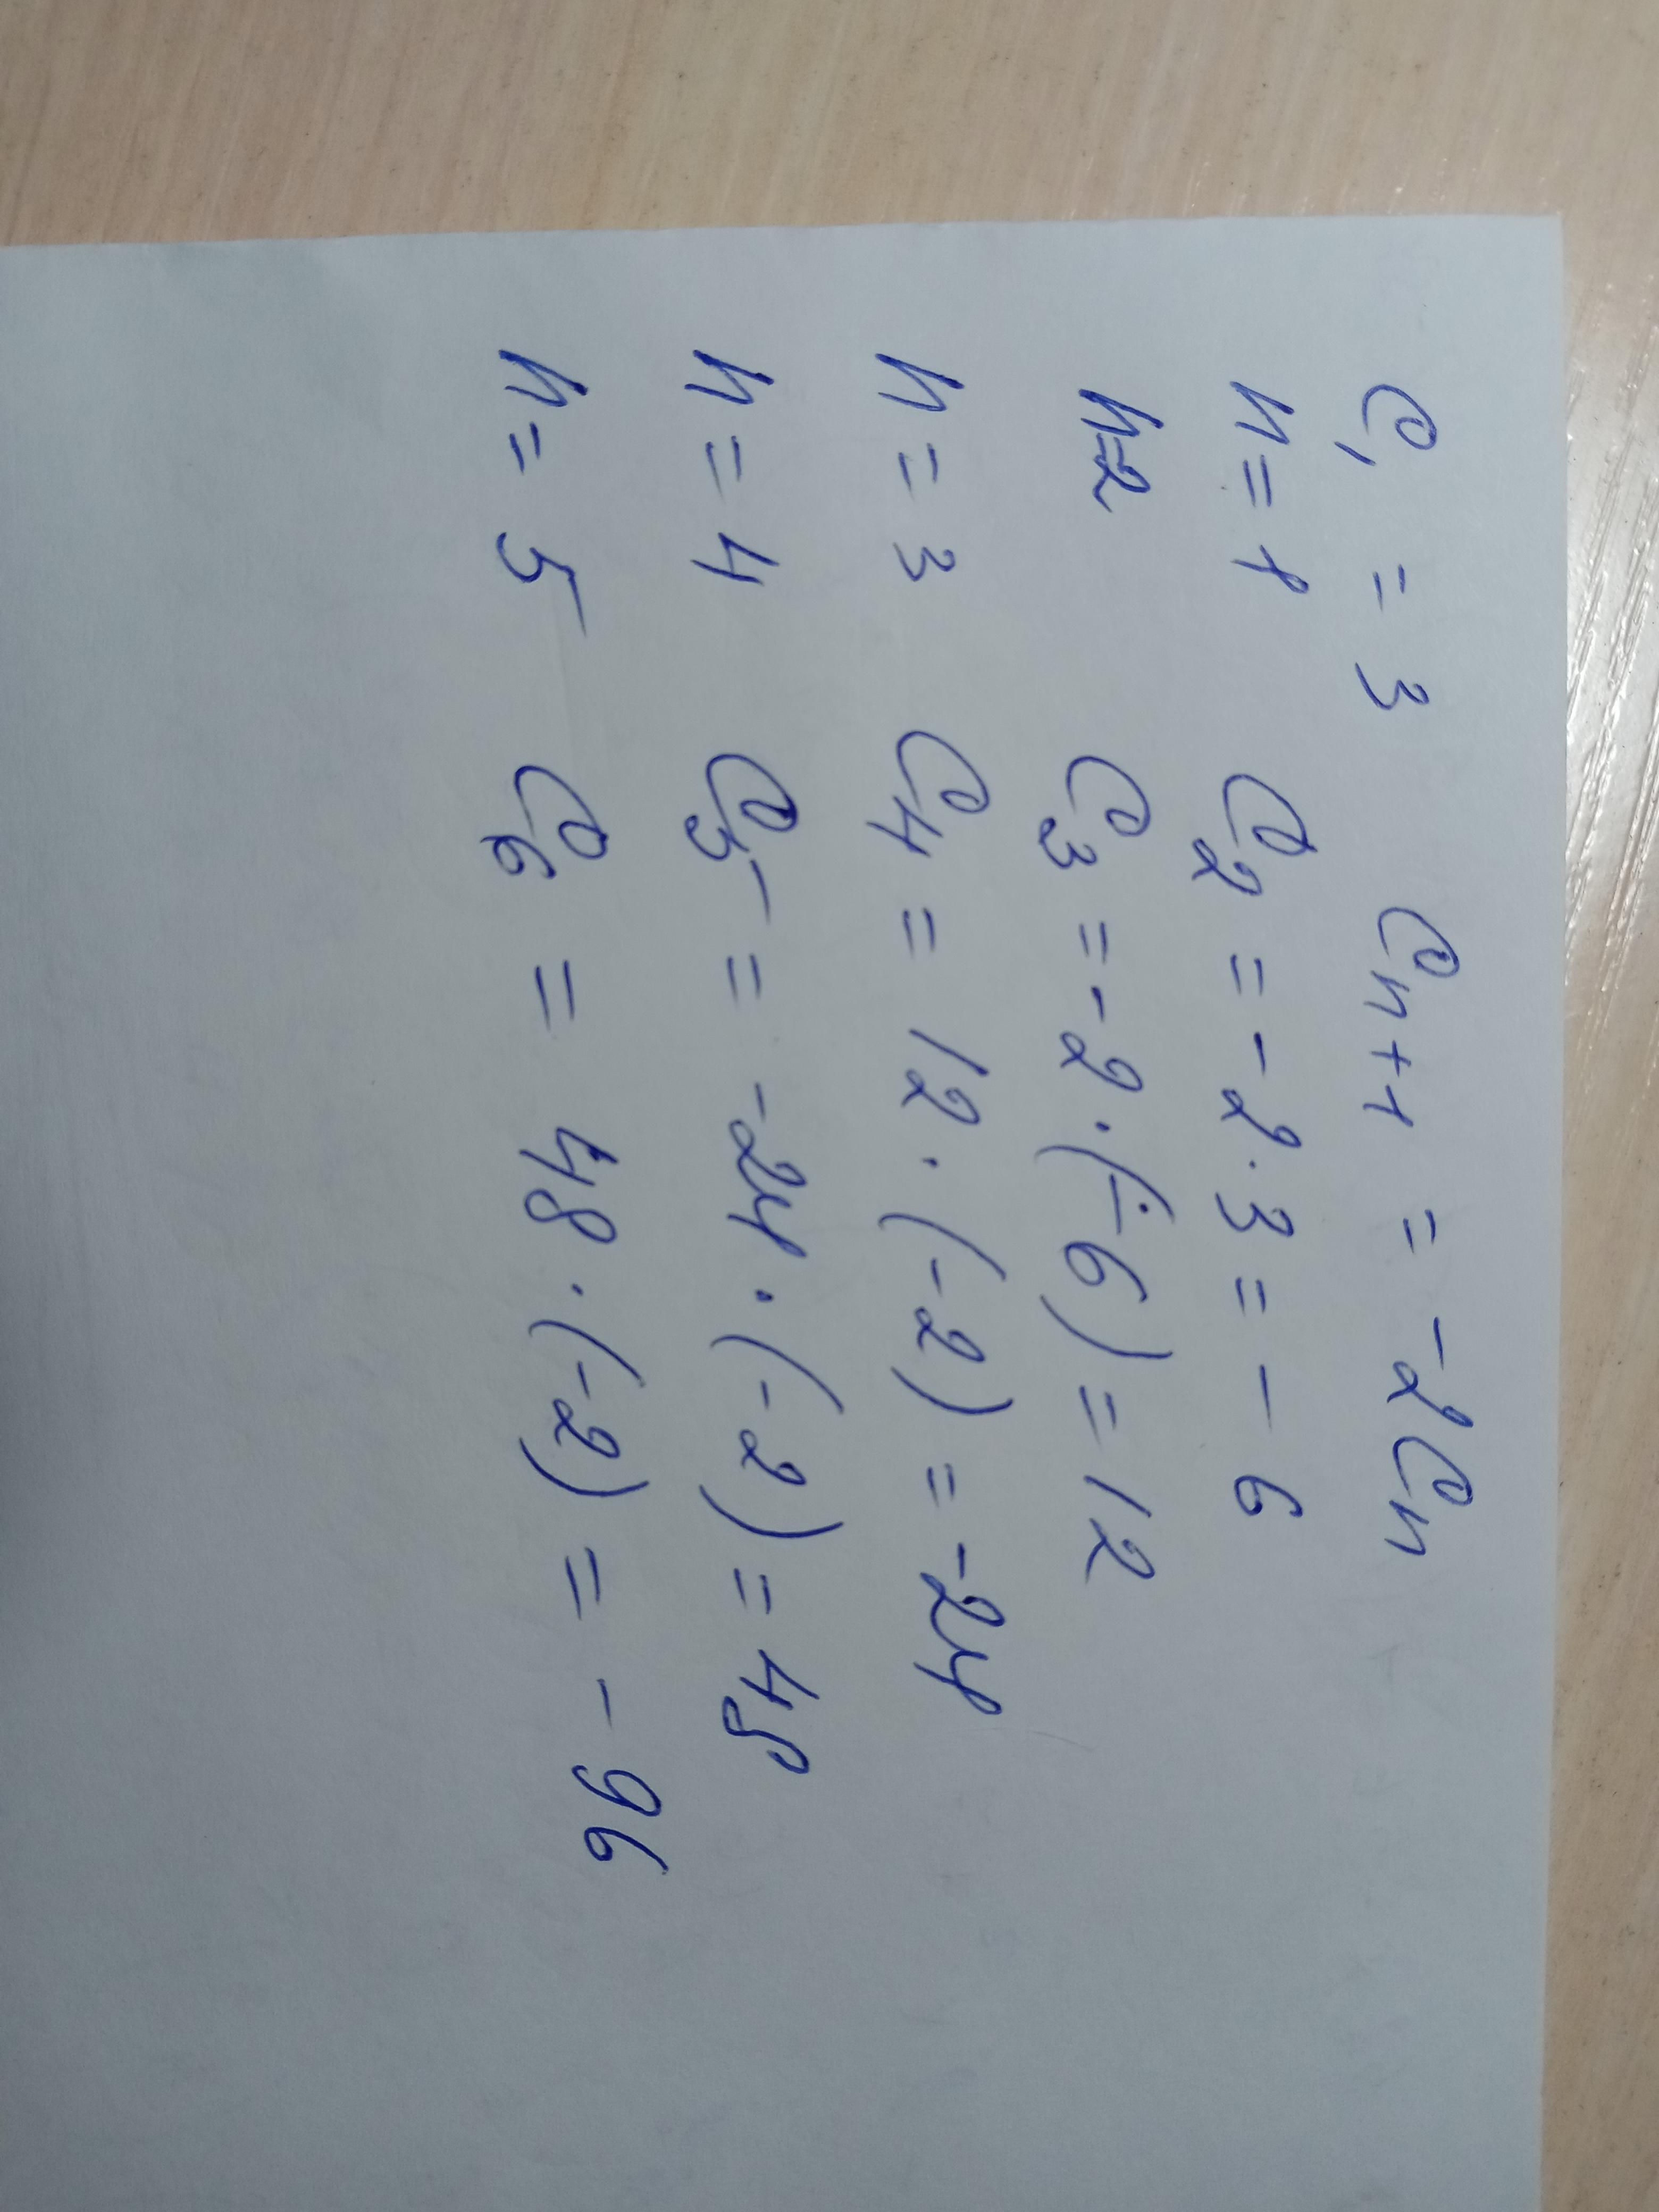 C₁ = 3 Cn+1 = -2Cn
n=1 C₂ = -2·3 = -6
n=2 C₃ = -2·(-6) = 12
n=3 C₄ = 12·(-2) = -24
n=4 C₅ = -24·(-2) = 48
n=5 C₆ = 48·(-2) = -96